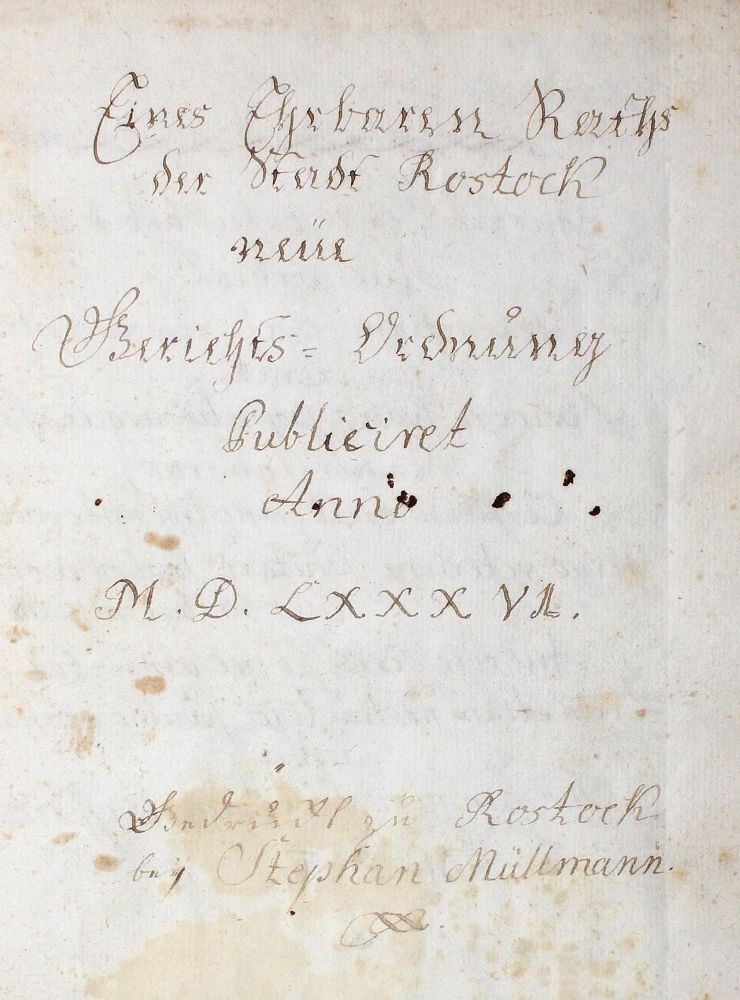 Eines Ehrbaren Raths
der Stadt Rostock
neüe
Gerichts= Ordnung
Publiciret
Anno
M. D. LXXXVI.
Gedruckt zu Rostock
bey Stephan Müllmann.